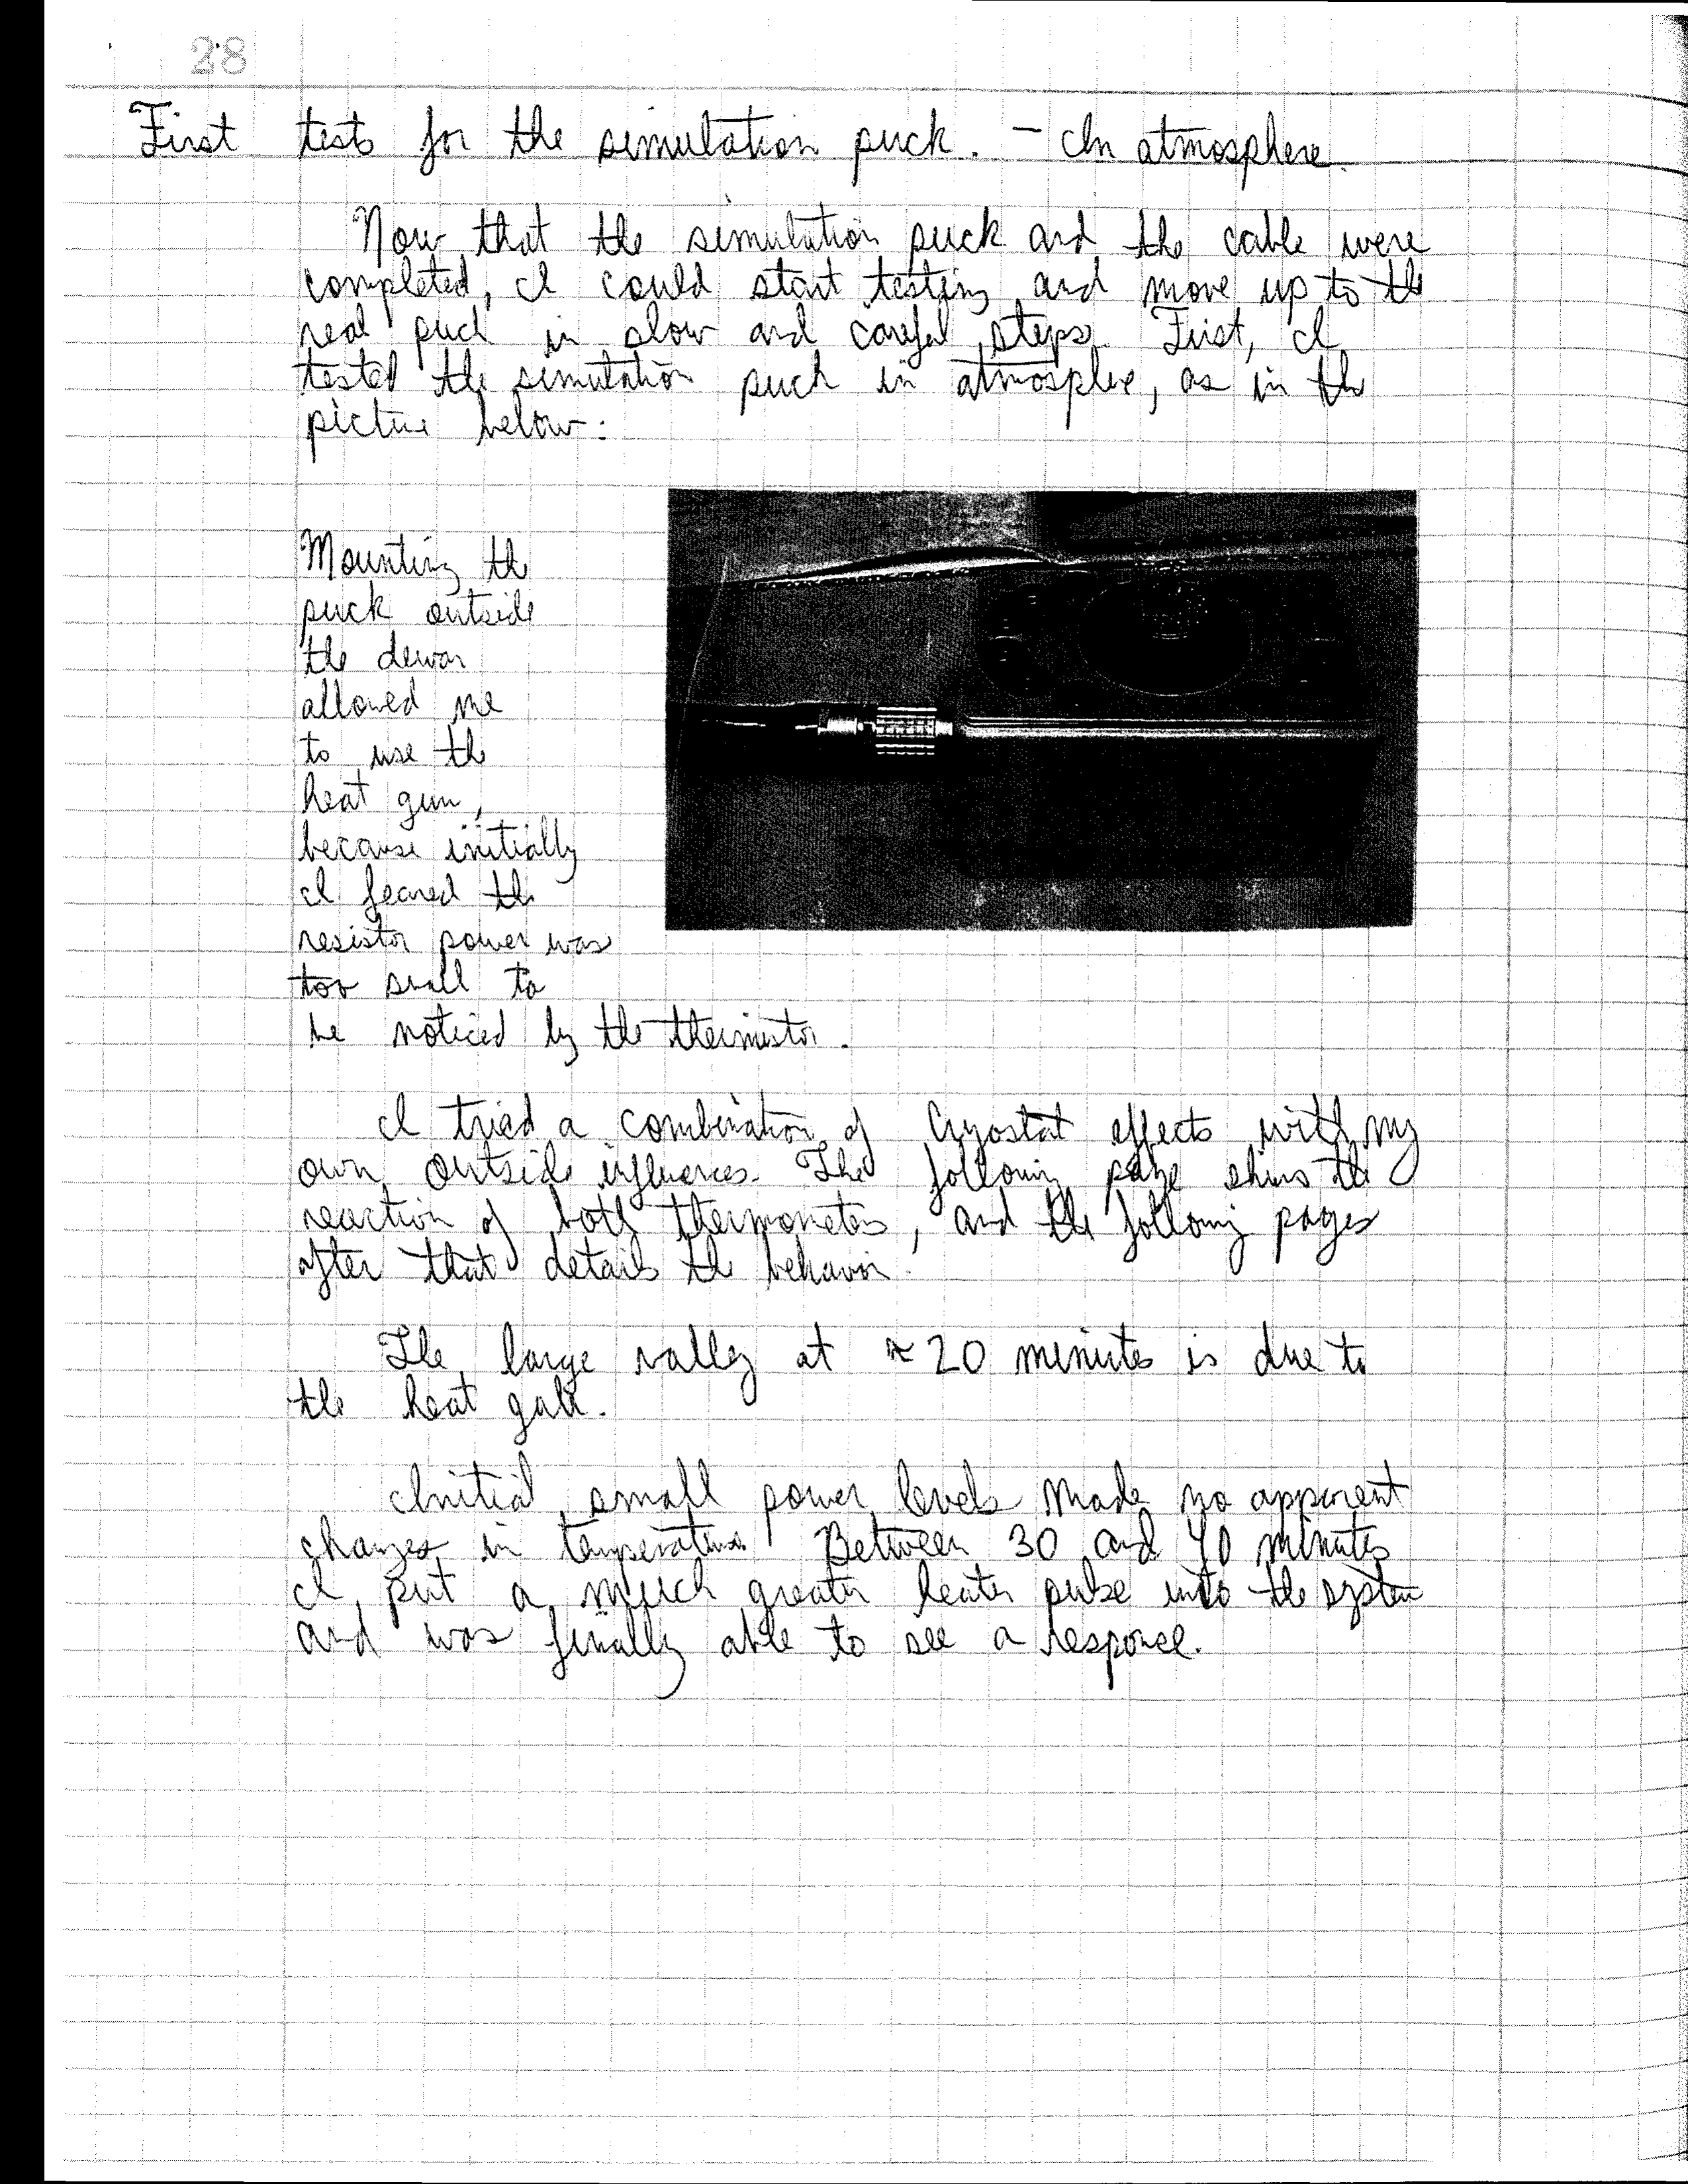 28
First tests for the simulation puck. - In atmosphere.
Now that the simulation puck and the cable were
completed, I could start testing and move up to the
real puck in slow and careful steps. First, I
tested the simulation puck in atmosphere, as in the
picture below:
Mounting the
puck outside
the dewar
allowed me
to use the
heat gun,
because initially
I feared the
resistor power was
too small to
be noticed by the thermistor.
I tried a combination of Cryostat effects with my
own outside influences. The following page shows the
reaction of both thermometers, and the following pages
after that details the behavior.
The large valley at ≈ 20 minutes is due to
the heat
Initial small power levels made no apparent
changes in temperature. Between 30 and 40 minutes
I put a much greater heater pulse into the system
and was finally able to see a responce.